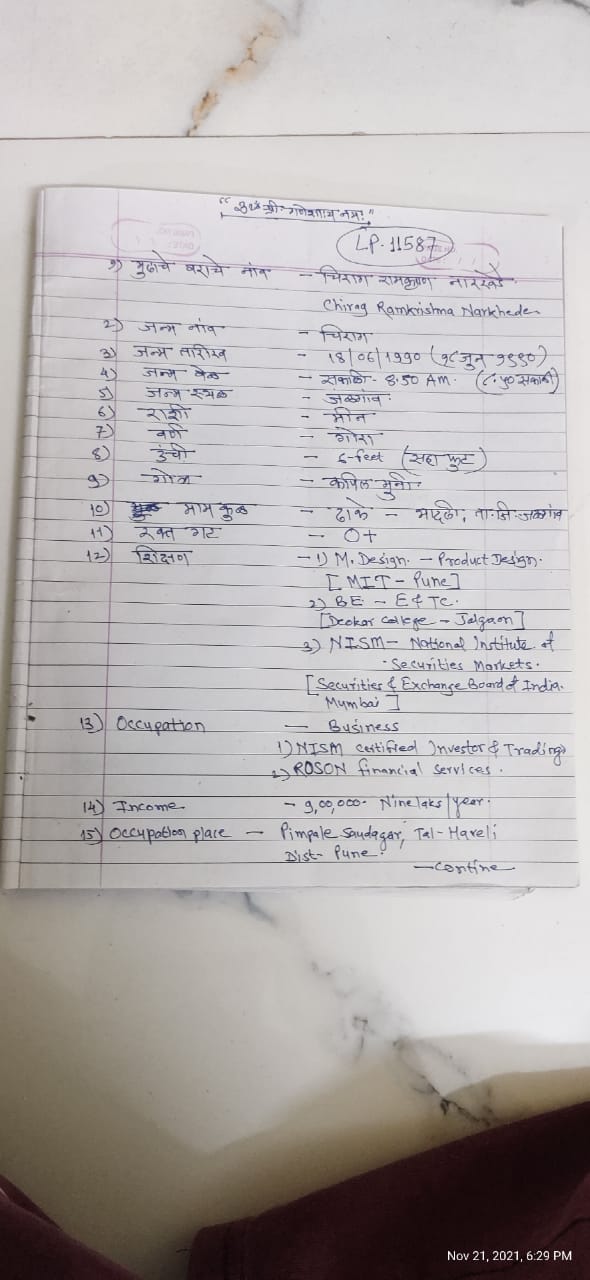 "ॐ श्री गणेशाय नमः"
LP-11587
१) मुलाचे वराचे नांव - चिराग रामकृष्ण नारखेडे
Chirag Ramkrishna Narkhede
2) जन्म नांव - चिराग
3) जन्म तारीख - 18/06/1990 (१८ जुन १९९०)
4) जन्म वेळ - सकाळी - 8:50 AM. (८:५० सकाळी)
5) जन्म स्थळ - जळगांव
6) राशी - मीन
7) वर्ण - गोरा
8) उंची - 6-feet (सहा फुट)
9) गोत्र - कपिल मुनी
10) माम कुळ - ढाके - भादली, ता.जि-जळगांव
11) रक्त गट - O+
12) शिक्षण - 1) M. Design. - Product Design.
[MIT - Pune]
2) BE - E&TC.
[Deokar College - Jalgaon]
3) NISM - National Institute of
Securities Markets.
[Securities & Exchange Board of India.
Mumbai]
13) Occupation - Business
1) NISM certified Investor & Trading
2) ROSON financial services.
14) Income - 9,00,000- Nine laks/year.
15) Occupation place - Pimpale Saudagar, Tal-Haveli
Dist- Pune.
- contine
Nov 21, 2021, 6:29 PM